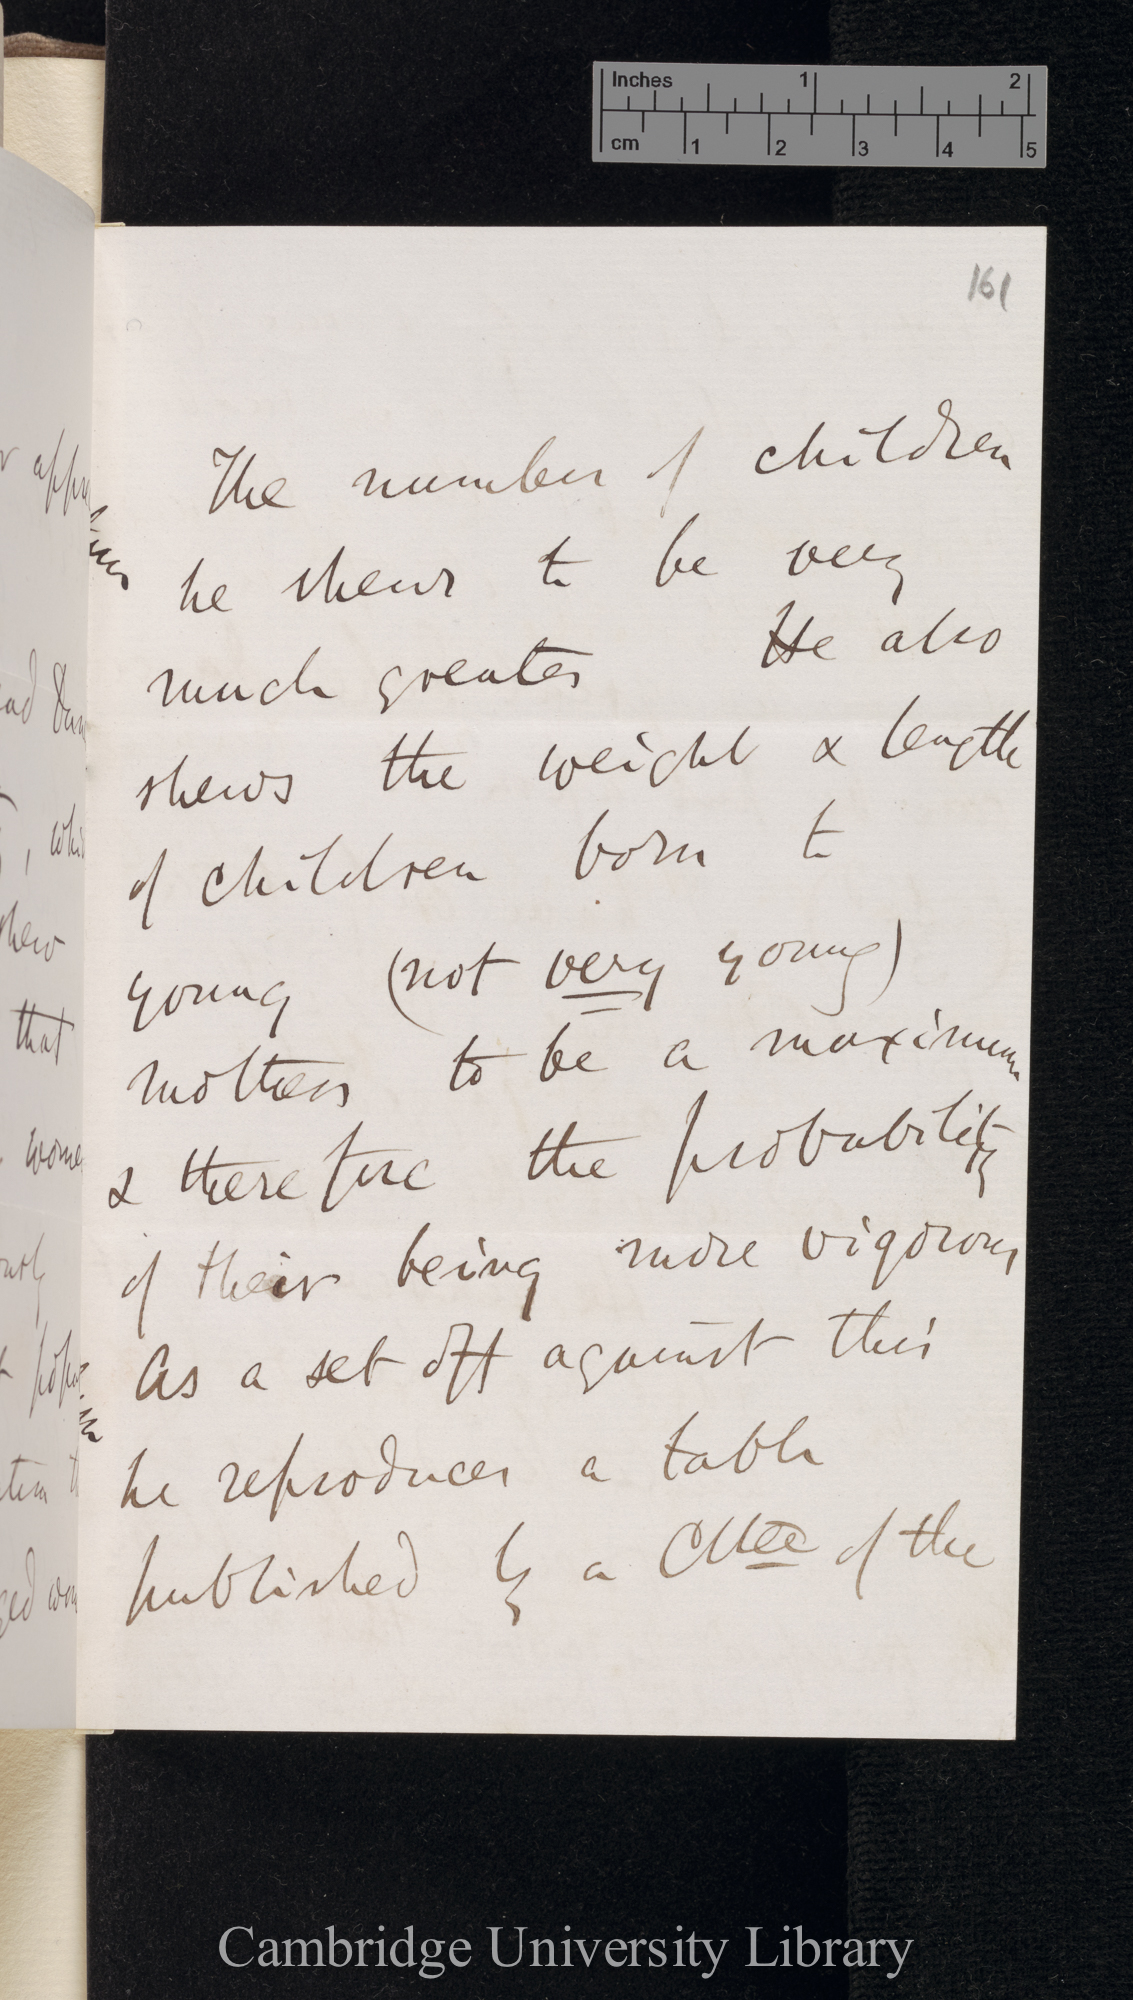 Inches 1 2
cm 1 2 3 4 5
161
The number of children
he shews to be very
much greater He also
shews the weight & length
of children born to
young (not very young)
mothers to be a maximum
& therefore the probability
of their being more vigorous
As a set off against this
he reproduces a table
published by a Cttee of the
that
Cambridge University Library